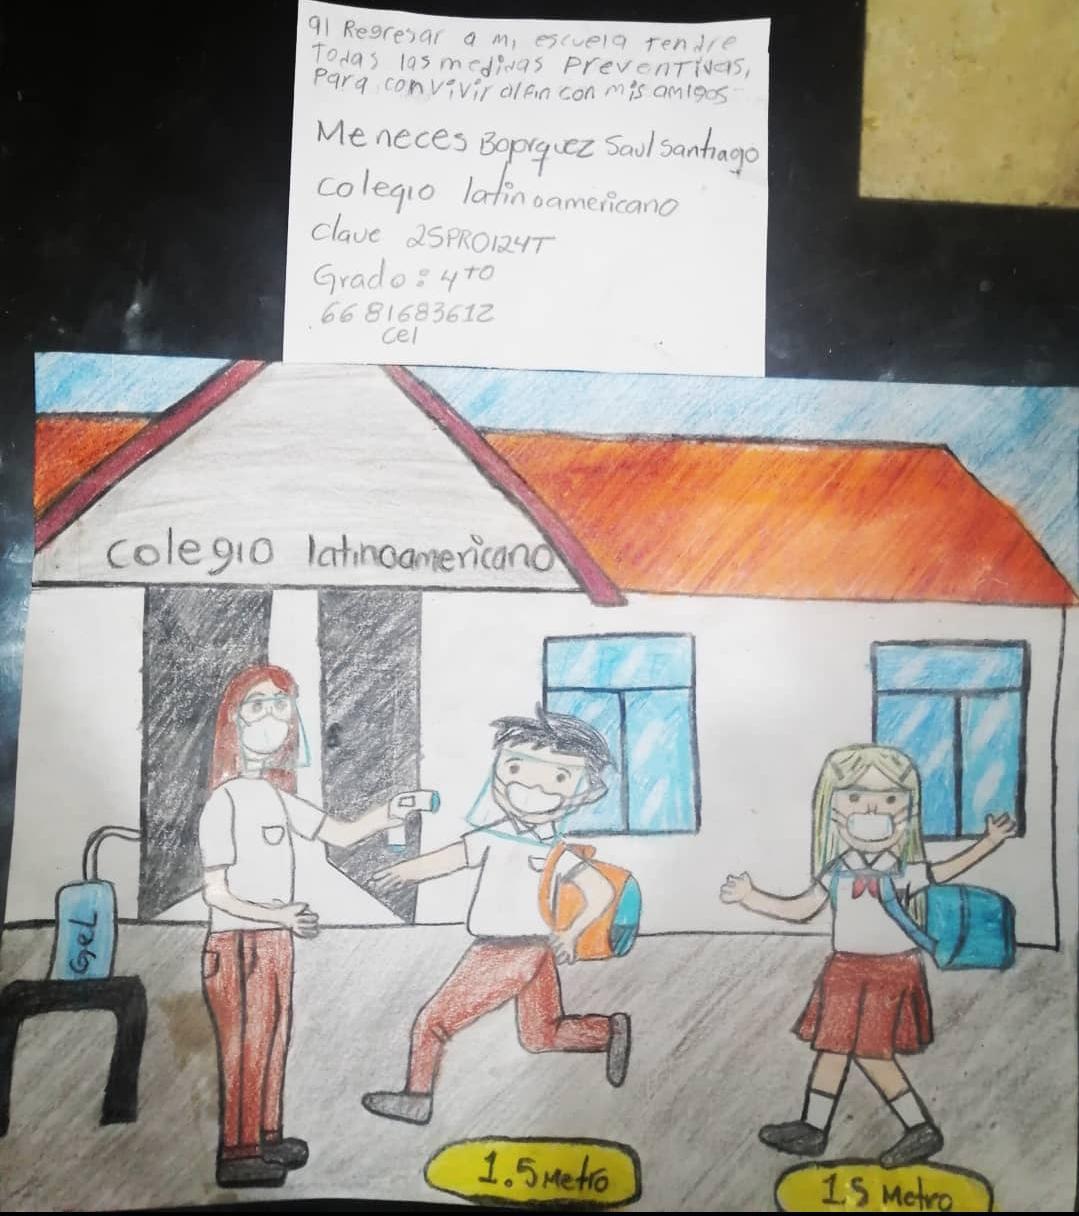 al Regresar a mi escuela tendre
Todas las medidas Preventivas,
Para convivir al fin con mis amigos
Meneces Bojorquez Saul Santiago
colegio latinoamericano
clave 25PR0124T
Grado: 4to
6681683612
cel
colegio latinoamericano
Gel
1.5 Metro
1.5 Metro